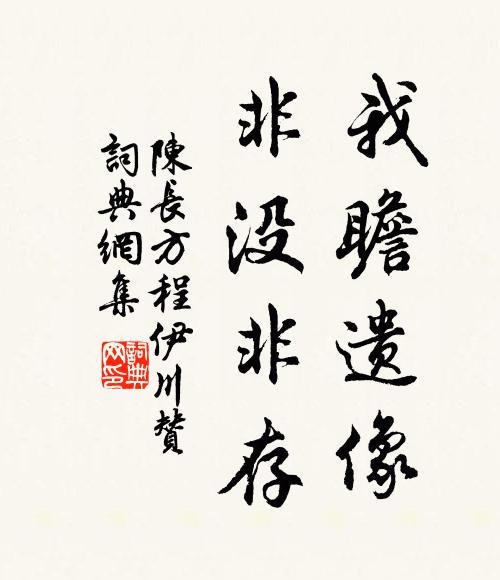 我瞻遗像
非没非存
陳長方程伊川贊
詞典網集
詞典网印